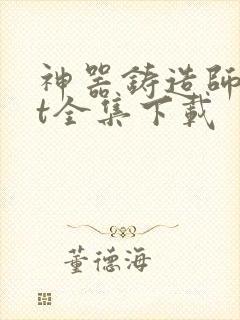 神器铸造師
t全集下載
董德海